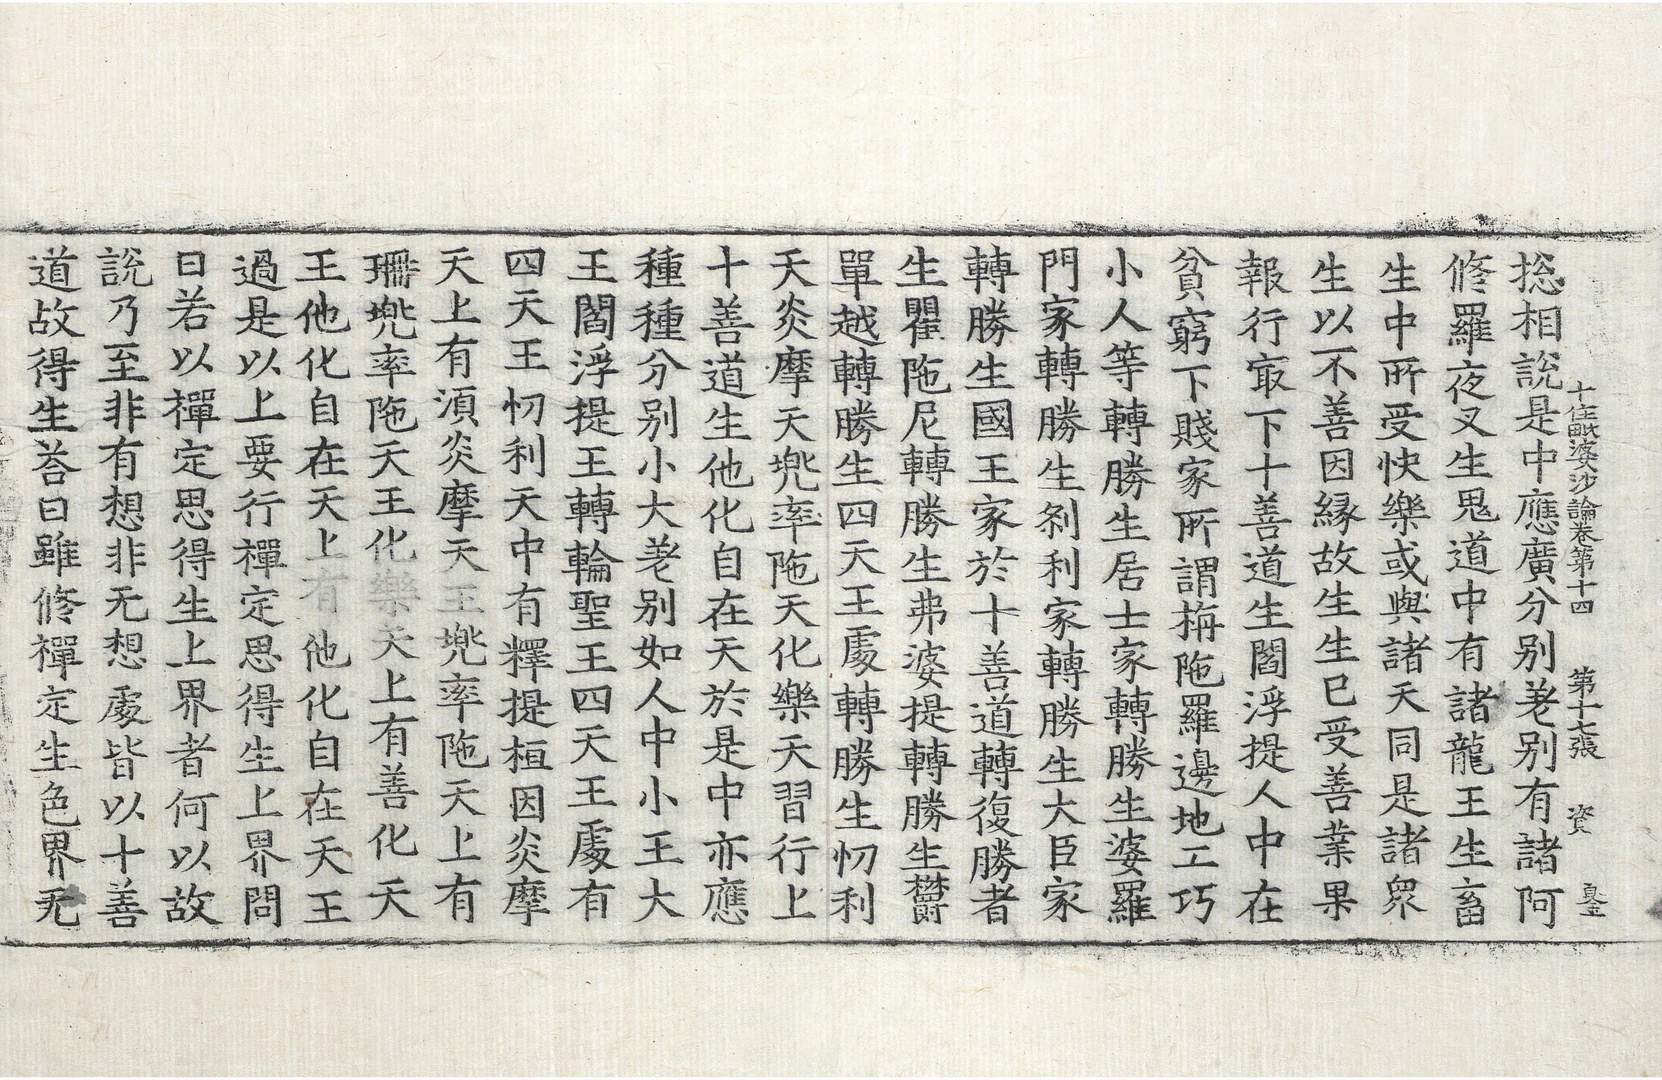 十住毗婆沙論卷第十四　第十七張　資
捴相說是中應廣分别差别有諸阿
修羅夜叉生鬼道中有諸龍王生畜
生中所受快樂或與諸天同是諸衆
生以不善因緣故生生已受善業果
報行㝡下十善道生閻浮提人中在
貧窮下賤家所謂栴陁羅邊地工巧
小人等轉勝生居士家轉勝生婆羅
門家轉勝生刹利家轉勝生大臣家
轉勝生國王家於十善道轉復勝者
生瞿陁尼轉勝生弗婆提轉勝生欝
單越轉勝生四天王處轉勝生忉利
天炎摩天兜率陁天化樂天習行上
十善道生他化自在天於是中亦應
種種分别小大差别如人中小王大
王閻浮提王轉輪聖王四天王處有
四天王忉利天中有釋提桓因炎摩
天上有須炎摩天王兜率陁天上有
珊兜率陁天王化樂天上有善化天
王他化自在天上有他化自在天王
過是以上要行禪定思得生上界問
曰若以禪定思得生上界者何以故
說乃至非有想非无想處皆以十善
道故得生荅曰雖修禪定生色界无